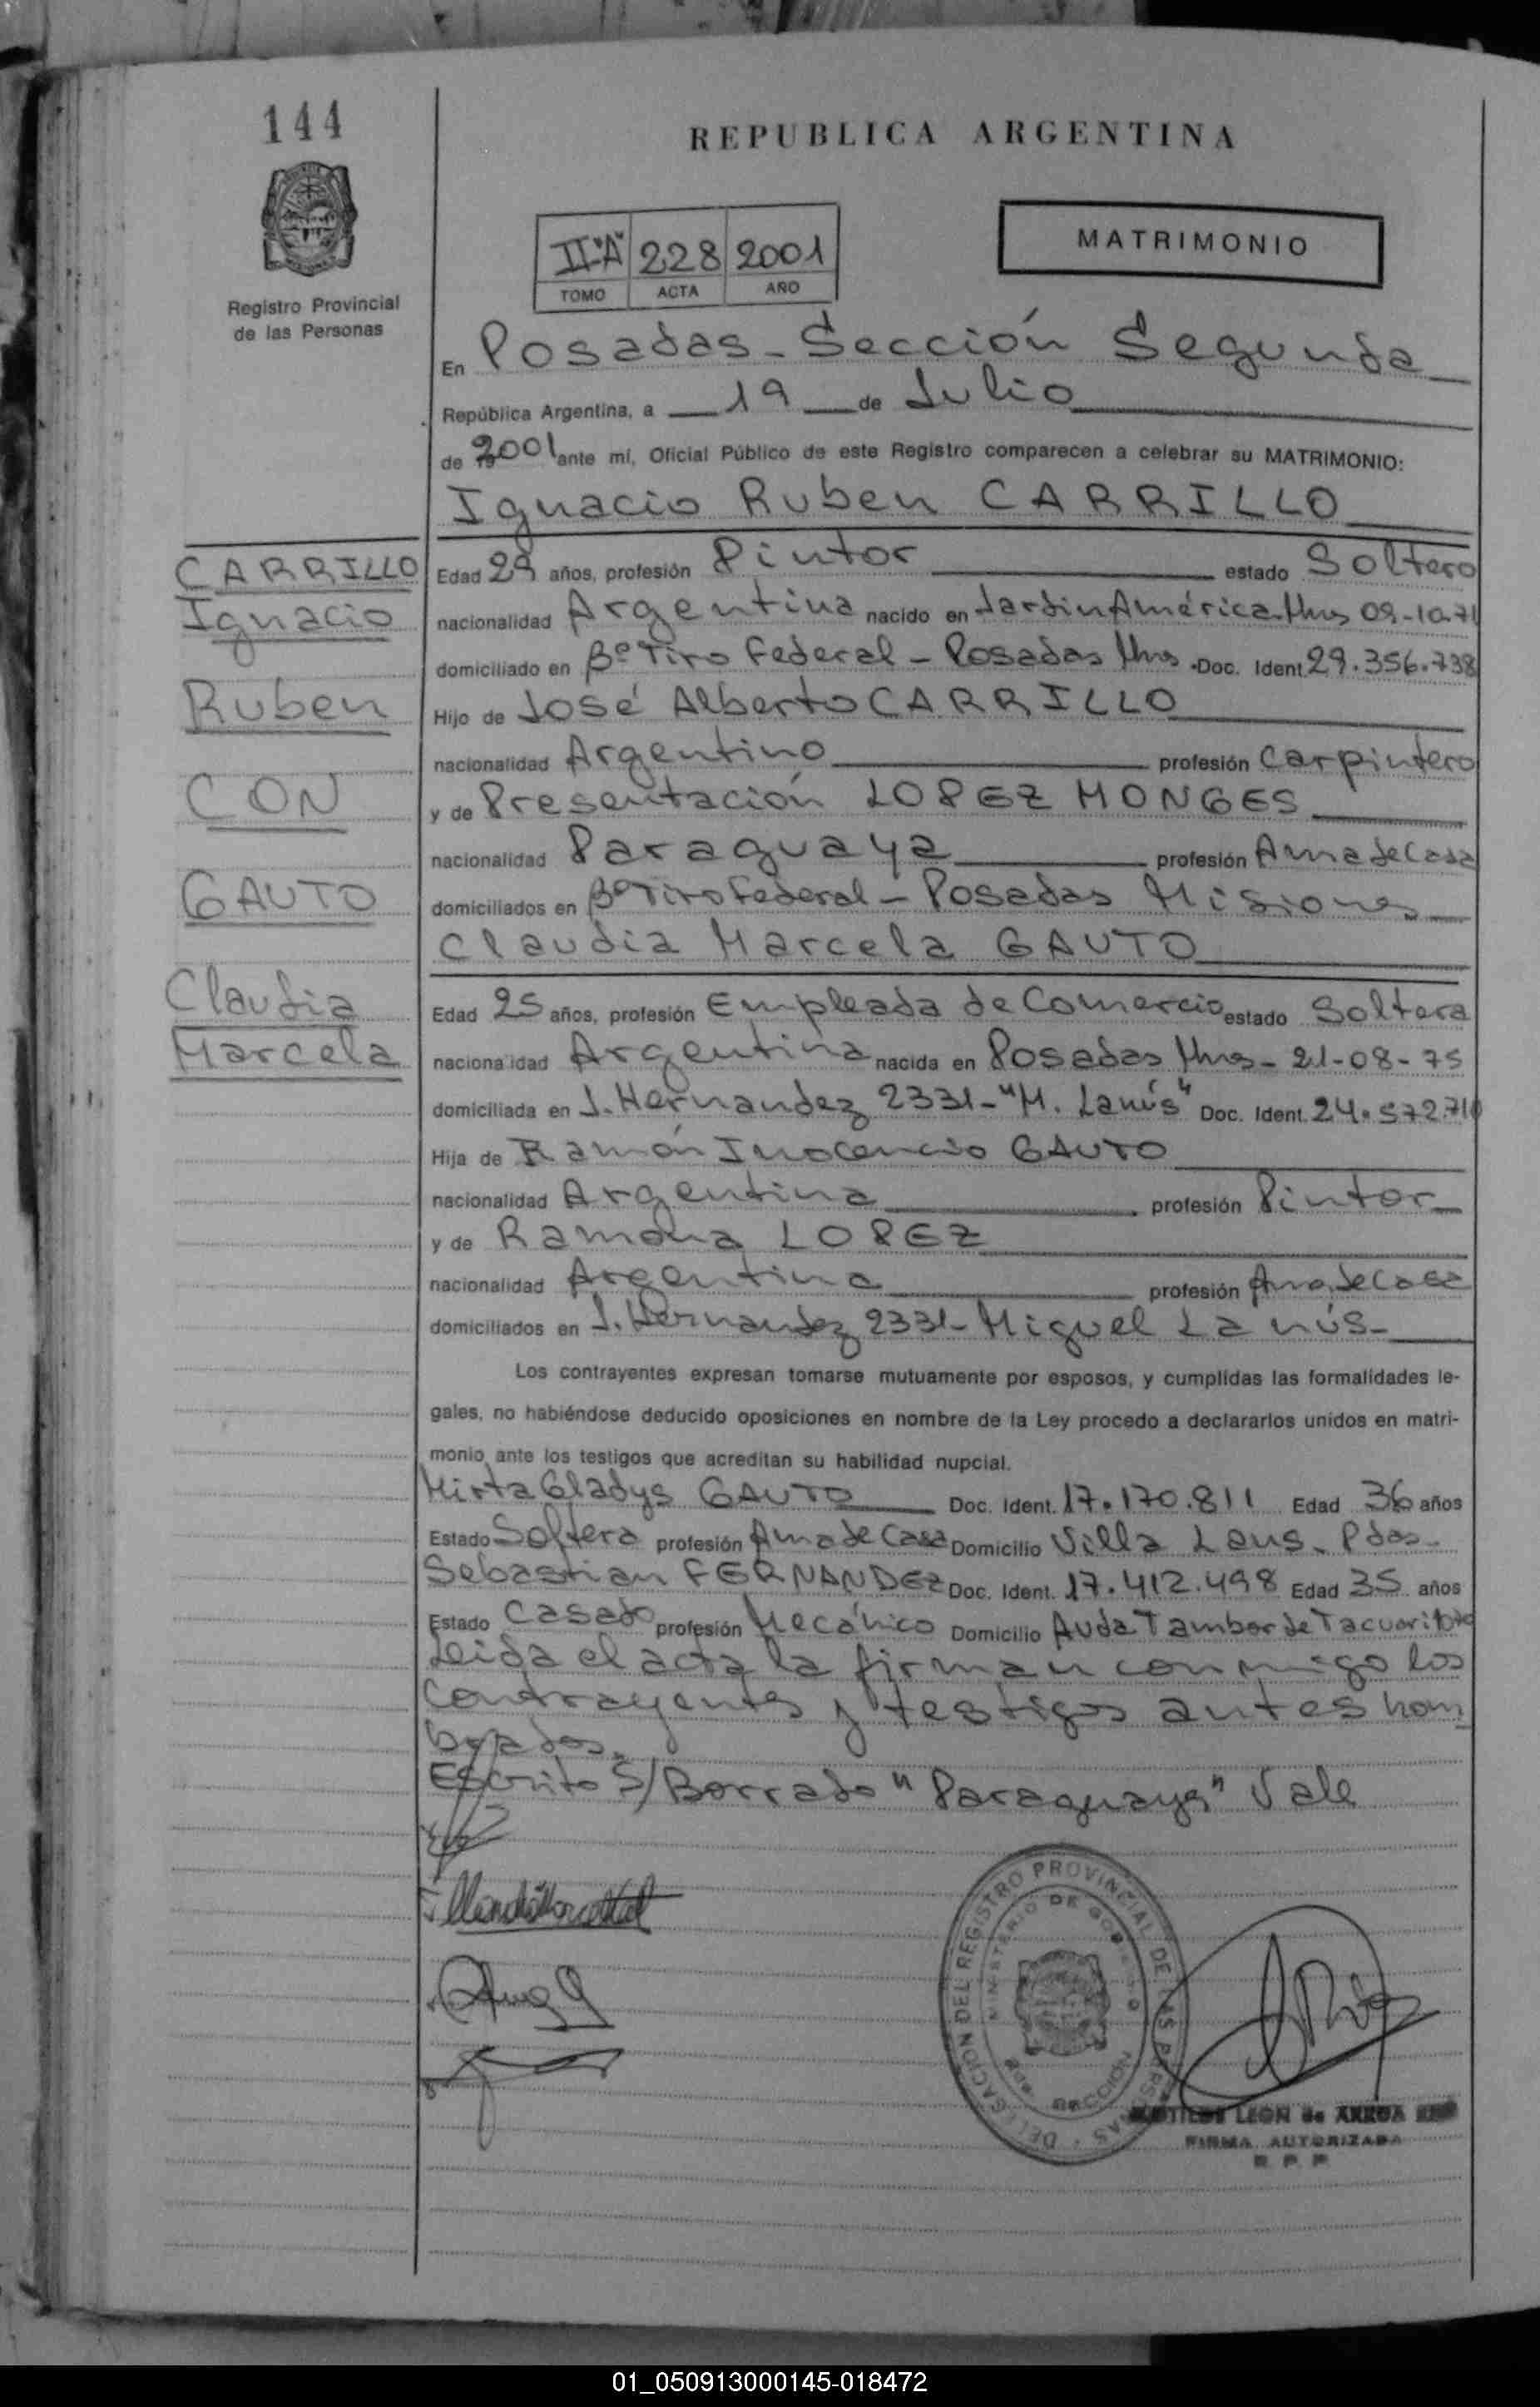 144
REPUBLICA ARGENTINA
Registro Provincial
de las Personas
II"A" 228 2001
TOMO ACTA AÑO
MATRIMONIO
En Posadas - Sección Segunda
República Argentina, a 19 de Julio
de 2001 ante mí, Oficial Público de este Registro comparecen a celebrar su MATRIMONIO:
Ignacio Ruben CARRILLO
CARRILLO
Ignacio
Ruben
CON
GAUTO
Claudia
Marcela
Edad 29 años, profesión Pintor estado Soltero
nacionalidad Argentina nacido en Jardin América. Mnes 09-10-71
domiciliado en Bº Tiro Federal - Posadas Mnes. Doc. Ident. 29.356.738
Hijo de José Alberto CARRILLO
nacionalidad Argentino profesión Carpintero
y de Presentación LOPEZ MONGES
nacionalidad Paraguaya profesión Ama de Casa
domiciliados en Bº Tiro Federal - Posadas Misiones
Claudia Marcela GAUTO
Edad 25 años, profesión Empleada de Comercio estado Soltera
nacionalidad Argentina nacida en Posadas Mnes - 21-08-75
domiciliada en J. Hernandez 2331 - "M. Lanús" Doc. Ident. 24.572.710
Hija de Ramón Inocencio GAUTO
nacionalidad Argentina profesión Pintor
y de Ramona LOPEZ
nacionalidad Argentina profesión Ama de Casa
domiciliados en J. Hernandez 2331 - Miguel Lanús -
Los contrayentes expresan tomarse mutuamente por esposos, y cumplidas las formalidades le-
gales, no habiéndose deducido oposiciones en nombre de la Ley procedo a declararlos unidos en matri-
monio ante los testigos que acreditan su habilidad nupcial.
Mirta Gladys GAUTO Doc. Ident. 17.170.811 Edad 36 años
Estado Soltera profesión Ama de Casa Domicilio Villa Lans. Pdas.
Sebastian FERNANDEZ Doc. Ident. 17.412.498 Edad 35 años
Estado Casado profesión Mecánico Domicilio Avda Tambor de Tacuari
Leida el acta la firman conmigo los
contrayentes y testigos antes nom
brados.
Escrito S/Borrado "Paraguaya" Vale
DELEGACION DEL REGISTRO PROVINCIAL DE LAS PERSONAS
MINISTERIO DE GOBIERNO
SECCION
LEON de
FIRMA AUTORIZADA
R P P
01_050913000145-018472